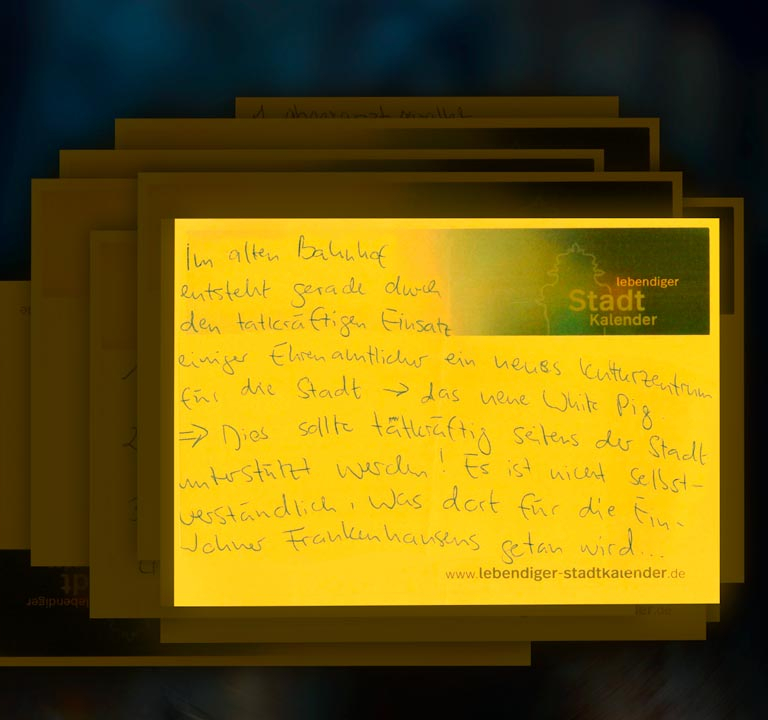 Im alten Bahnhof
entsteht gerade durch
den tatkräftigen Einsatz
einiger Ehrenamtlicher ein neues Kulturzentrum
für die Stadt → das neue White Pig.
⇒ Dies sollte tatkräftig seitens der Stadt
unterstützt werden! Es ist nicht selbst-
verständlich, was dort für die Ein-
wohner Frankenhausens getan wird...
lebendiger
Stadt
Kalender
www.lebendiger-stadtkalender.de